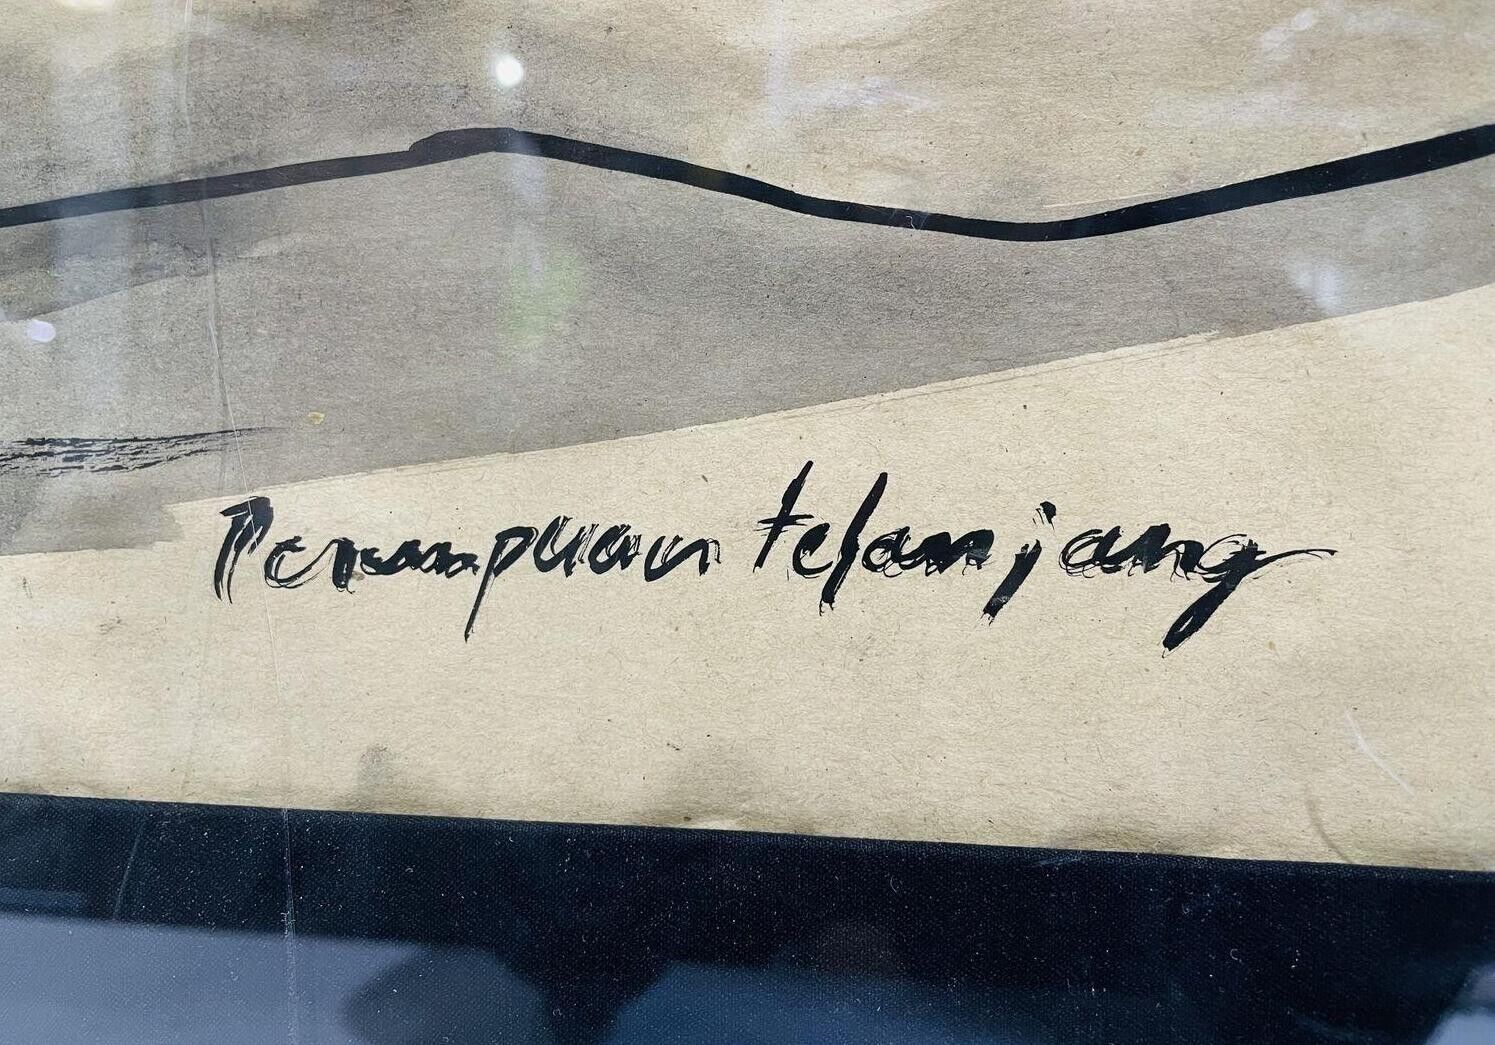 Perempuan telanjang